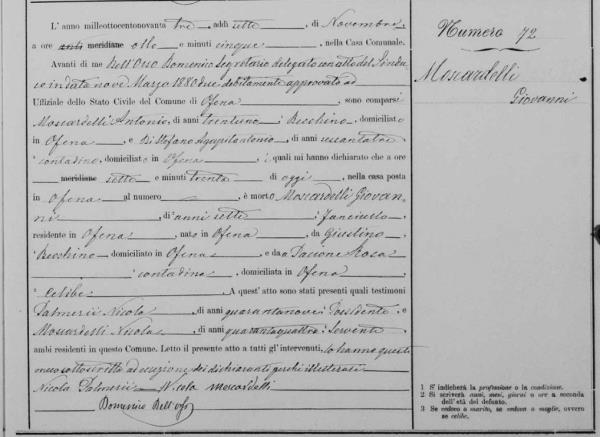 L' anno milleottocentonovanta tre, addì sette, di Novembre,
a ore anti meridiane otto e minuti cinque, nella Casa Comunale.
Avanti di me Dell'Orso Domenico Segretario delegato con atto del Sinda
co in data nove Marzo 1880 due debitamente approvato ed
Uffiziale dello Stato Civile del Comune di Ofena, sono comparsi
Moscardelli Antonio, di anni trentuno, Becchino, domiciliato
in Ofena, e Di Stefano Agapito Antonio, di anni sessantatre
contadino, domiciliato in Ofena, i quali mi hanno dichiarato che a ore
meridiane sette e minuti trenta di oggi, nella casa posta
in Ofena al numero, è morto Moscardelli Giovan-
ni, di anni sette, Fanciullo,
residente in Ofena, nato in Ofena, da Giustino,
Becchino domiciliato in Ofena, e da Rosa
contadina, domiciliata in Ofena,
celibe. A quest' atto sono stati presenti quali testimoni
Palmerii Nicola, di anni quarantanove, Possidente, e
Moscardelli Nicola, di anni quarantaquattro, Servente
ambi residenti in questo Comune. Letto il presente atto a tutti gl' intervenuti, lo hanno questi
meco sottoscritto ad eccezione dei dichiaranti perchè illetterati
Nicola Palmerii Nicola Moscardelli
Domenico Dell'Orso
Numero 72
Moscardelli
Giovanni
1 S' indicherà la professione o la condizione.
2 Si scriverà anni, mesi, giorni o ore a seconda
dell'età del defunto.
3 Se vedovo o marito, se vedova o moglie, ovvero
se celibe.